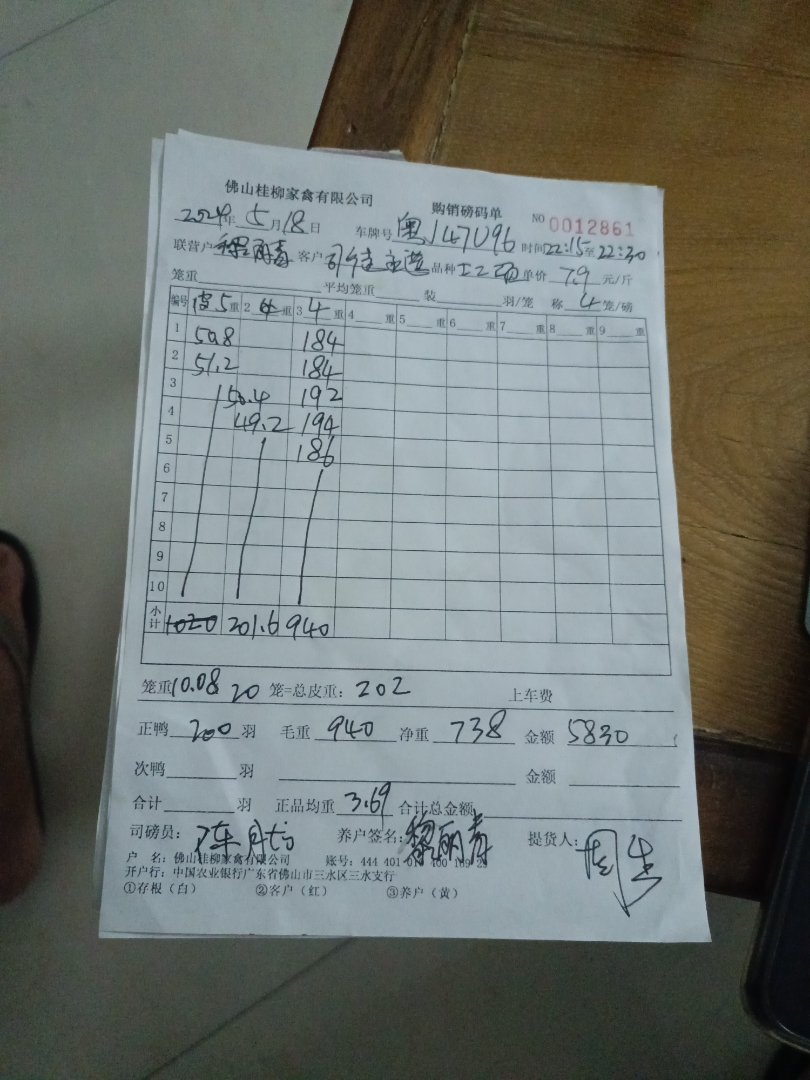 佛山桂柳家禽有限公司 购销磅码单 NO 0012861
2024年5月18日 车牌号 粤J47U96 时间22:15至22:30
联营户 客户 品种 单价 7.9 元/斤
笼重 平均笼重 装 羽/笼 称 4 笼/磅
编号 皮5重 2 重 3 4 重 4 重 5 重 6 重 7 重 8 重 9 重
1 50.8 184
2 51.2 184
3 50.4 192
4 49.2 194
5 186
6
7
8
9
10
小计 1020 201.6 940
笼重10.08 20 笼=总皮重: 202 上车费
正鸭 200 羽 毛重 940 净重 738 金额 5830
次鸭 羽 金额
合计 羽 正品均重 3.69 合计总金额
司磅员: 养户签名: 黎丽青 提货人:
户 名: 佛山桂柳家禽有限公司 账号: 444 401
开户行: 中国农业银行广东省佛山市三水区三水支行
①存根(白) ②客户(红) ③养户(黄)